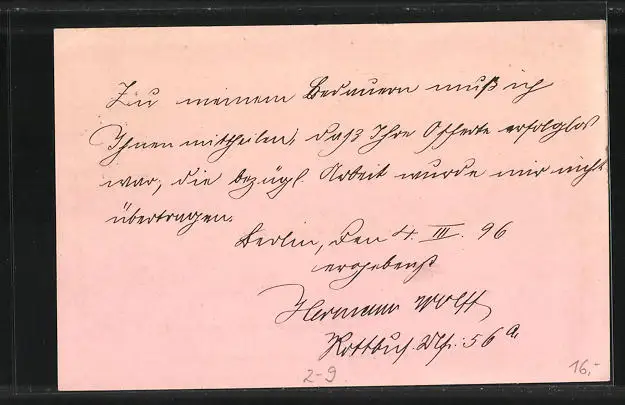 Zu meinem Bedauern muß ich
Ihnen mittheilen, daß Ihre Offerte erfolglos
war, die bezügl. Arbeit wurde mir nicht
übertragen.
Berlin, den 4. III. 96
ergebenst
Hermann Wolff
Kottbus. Ufr. 56 a.
2-9
16,-